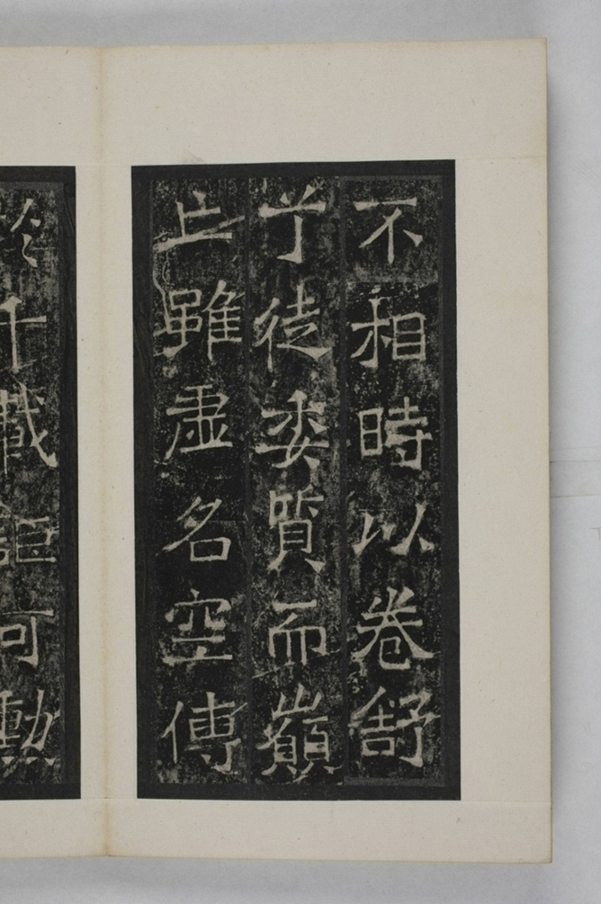 不相時以卷舒
兮徒委質而巔
亡雖虛名空傳
於千載詎何勳